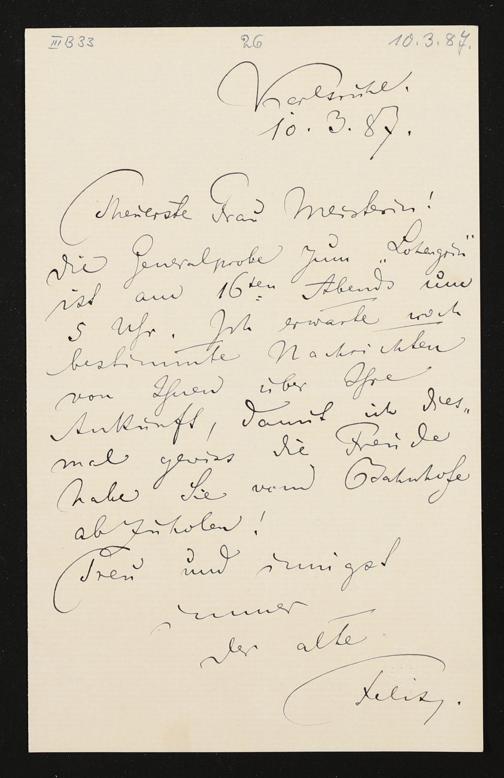 III B 33 26 10.3.87.
Karlsruhe.
10. 3. 87.
Theuerste Frau Meisterin!
die Generalprobe zum „Lohengrin“
ist am 16ten Abends um
5 Uhr. Ich erwarte noch
bestimmte Nachrichten
von Ihnen über Ihre
Ankunft, damit ich dies„
mal gewiss die Freude
habe Sie vom Bahnhofe
abzuholen!
Treu und innigst
immer
der alte
Felix.